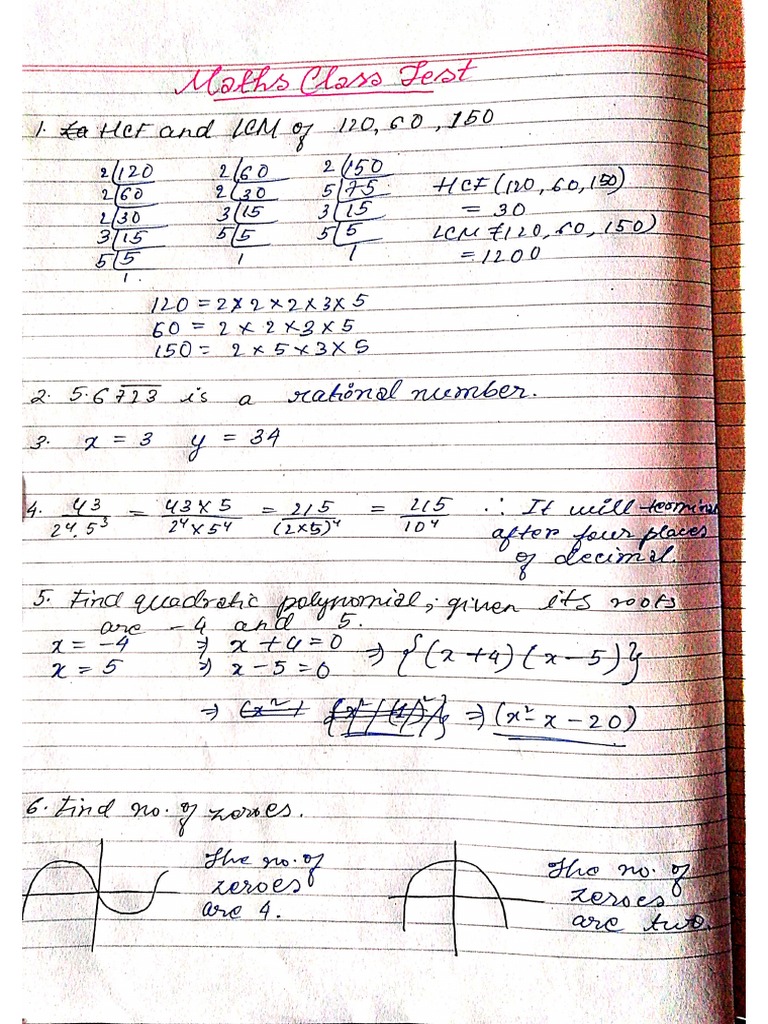 Maths Class Test
1. HCF and LCM of 120, 60, 150
2 120 2 60 2 150
2 60 2 30 5 75
2 30 3 15 3 15
3 15 5 5 5 5
5 5 1 1
1.
HCF (120, 60, 150)
= 30
LCM (120, 60, 150)
= 1200
120 = 2 × 2 × 2 × 3 × 5
60 = 2 × 2 × 3 × 5
150 = 2 × 5 × 3 × 5
2. 5.6\overline{723} is a rational number.
3. x = 3 y = 34
4. 43/2⁴.5³ = 43×5/2⁴×5⁴ = 215/(2×5)⁴ = 215/10⁴ ∴ It will
after four places
of decimal.
5. Find quadratic polynomial, given its roots
are -4 and 5.
x = -4 ⇒ x + 4 = 0 ⇒ {(x+4)(x-5)}
x = 5 ⇒ x - 5 = 0
⇒ ⇒ (x² - x - 20)
6. Find no. of zeroes.
The no. of
zeroes
are 4.
The no. of
zeroes
are two.